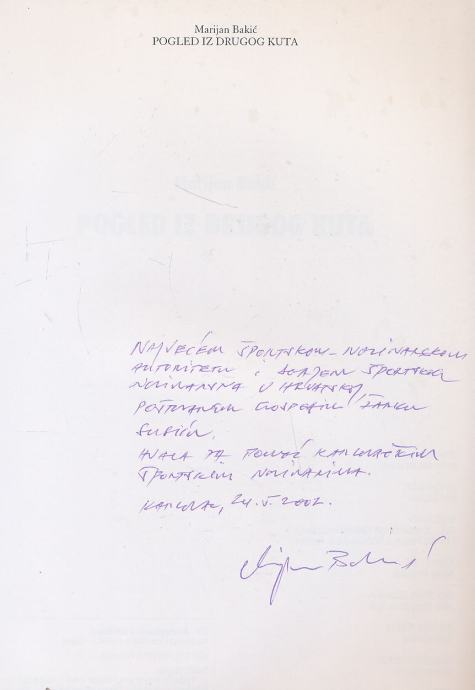 Marijan Bakić
POGLED IZ DRUGOG KUTA
Marijan Bakić
POGLED IZ DRUGOG KUTA
NAJVEĆEM ŠPORTSKOM-NOVINARSKOM
AUTORITETU I ŠPORTSKOG
NOVINARSTVA U HRVATSKOJ
POŠTOVANOM GOSPODINU ŽARKU
SUSIĆU.
HVALA NA POMOĆ KARLOVAČKIM
ŠPORTSKIM NOVINARIMA.
KARLOVAC, 24. V. 2002.
Marijan Bakić